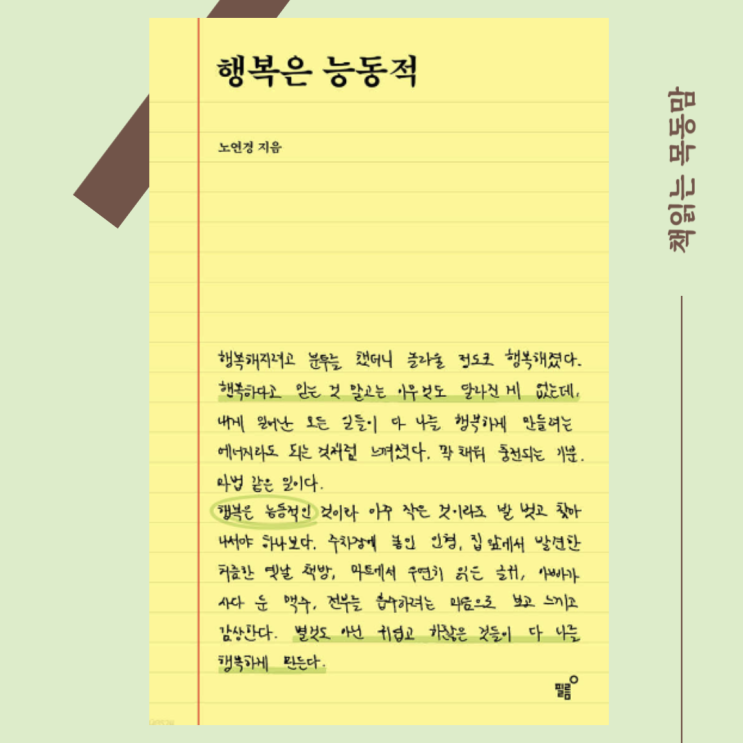 행복은 능동적
노연경 지음
행복해지려고 분투를 했더니 놀라울 정도로 행복해졌다.
행복하다고 믿는 것 말고는 아무것도 달라진 게 없는데,
내게 일어난 모든 일들이 다 나를 행복하게 만들려는
에너지라도 되는 것처럼 느껴졌다. 꽉 채워 충전되는 기분.
마법 같은 일이다.
행복은 능동적인 것이라 아주 작은 것이라도 발 벗고 찾아
나서야 하나보다. 주차장에 놓인 인형, 집 앞에서 발견한
허름한 옛날 책방, 마트에서 우연히 읽은 글귀, 아빠가
사다 둔 맥주, 전부를 흡수하려는 마음으로 보고 느끼고
감상한다. 별것도 아닌 귀엽고 하찮은 것들이 다 나를
행복하게 만든다.
필름
책읽는 목동맘